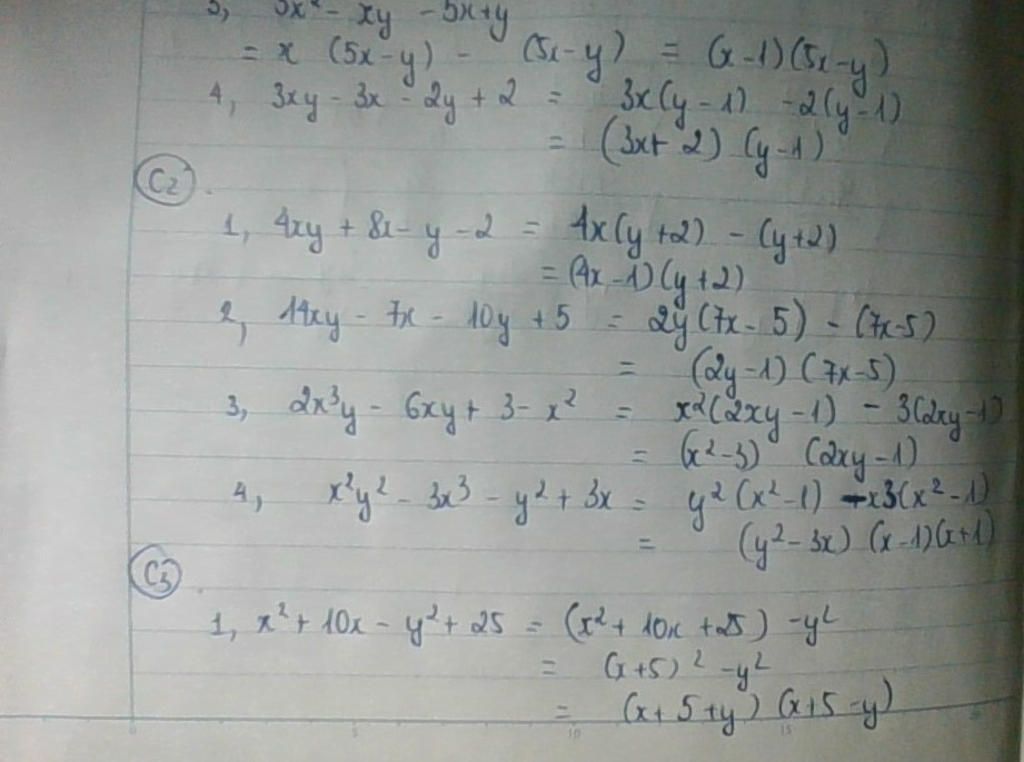 3, 5x² - xy - 5x+y
= x (5x-y) - (5x-y) = (x-1)(5x-y)
4, 3xy - 3x - 2y + 2 = 3x(y-1) -2(y-1)
= (3x+2) (y-1)
C2
1, 4xy + 8x - y - 2 = 4x(y+2) - (y+2)
= (4x-1)(y+2)
2, 14xy - 7x - 10y + 5 = 2y(7x-5) - (7x-5)
= (2y-1) (7x-5)
3, 2x³y - 6xy + 3 - x² = x²(2xy-1) - 3(2xy-1)
= (x²-3) (2xy-1)
4, x²y² - 3x³ - y² + 3x = y²(x²-1) -x3(x²-1)
= (y²-3x) (x-1)(x+1)
C3
1, x² + 10x - y² + 25 = (x² + 10x + 25) - y²
= (x+5)² - y²
= (x+5+y) (x+5-y)
0 5 10 15